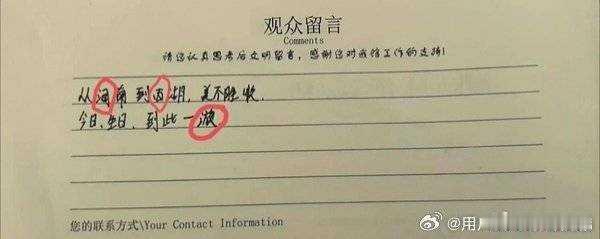 观众留言
Comments
请您认真思考后文明留言，感谢您对我馆工作的支持！
从河南到西湖，美不胜收.
今日、日，到此一游
您的联系方式\Your Contact Information
@用户